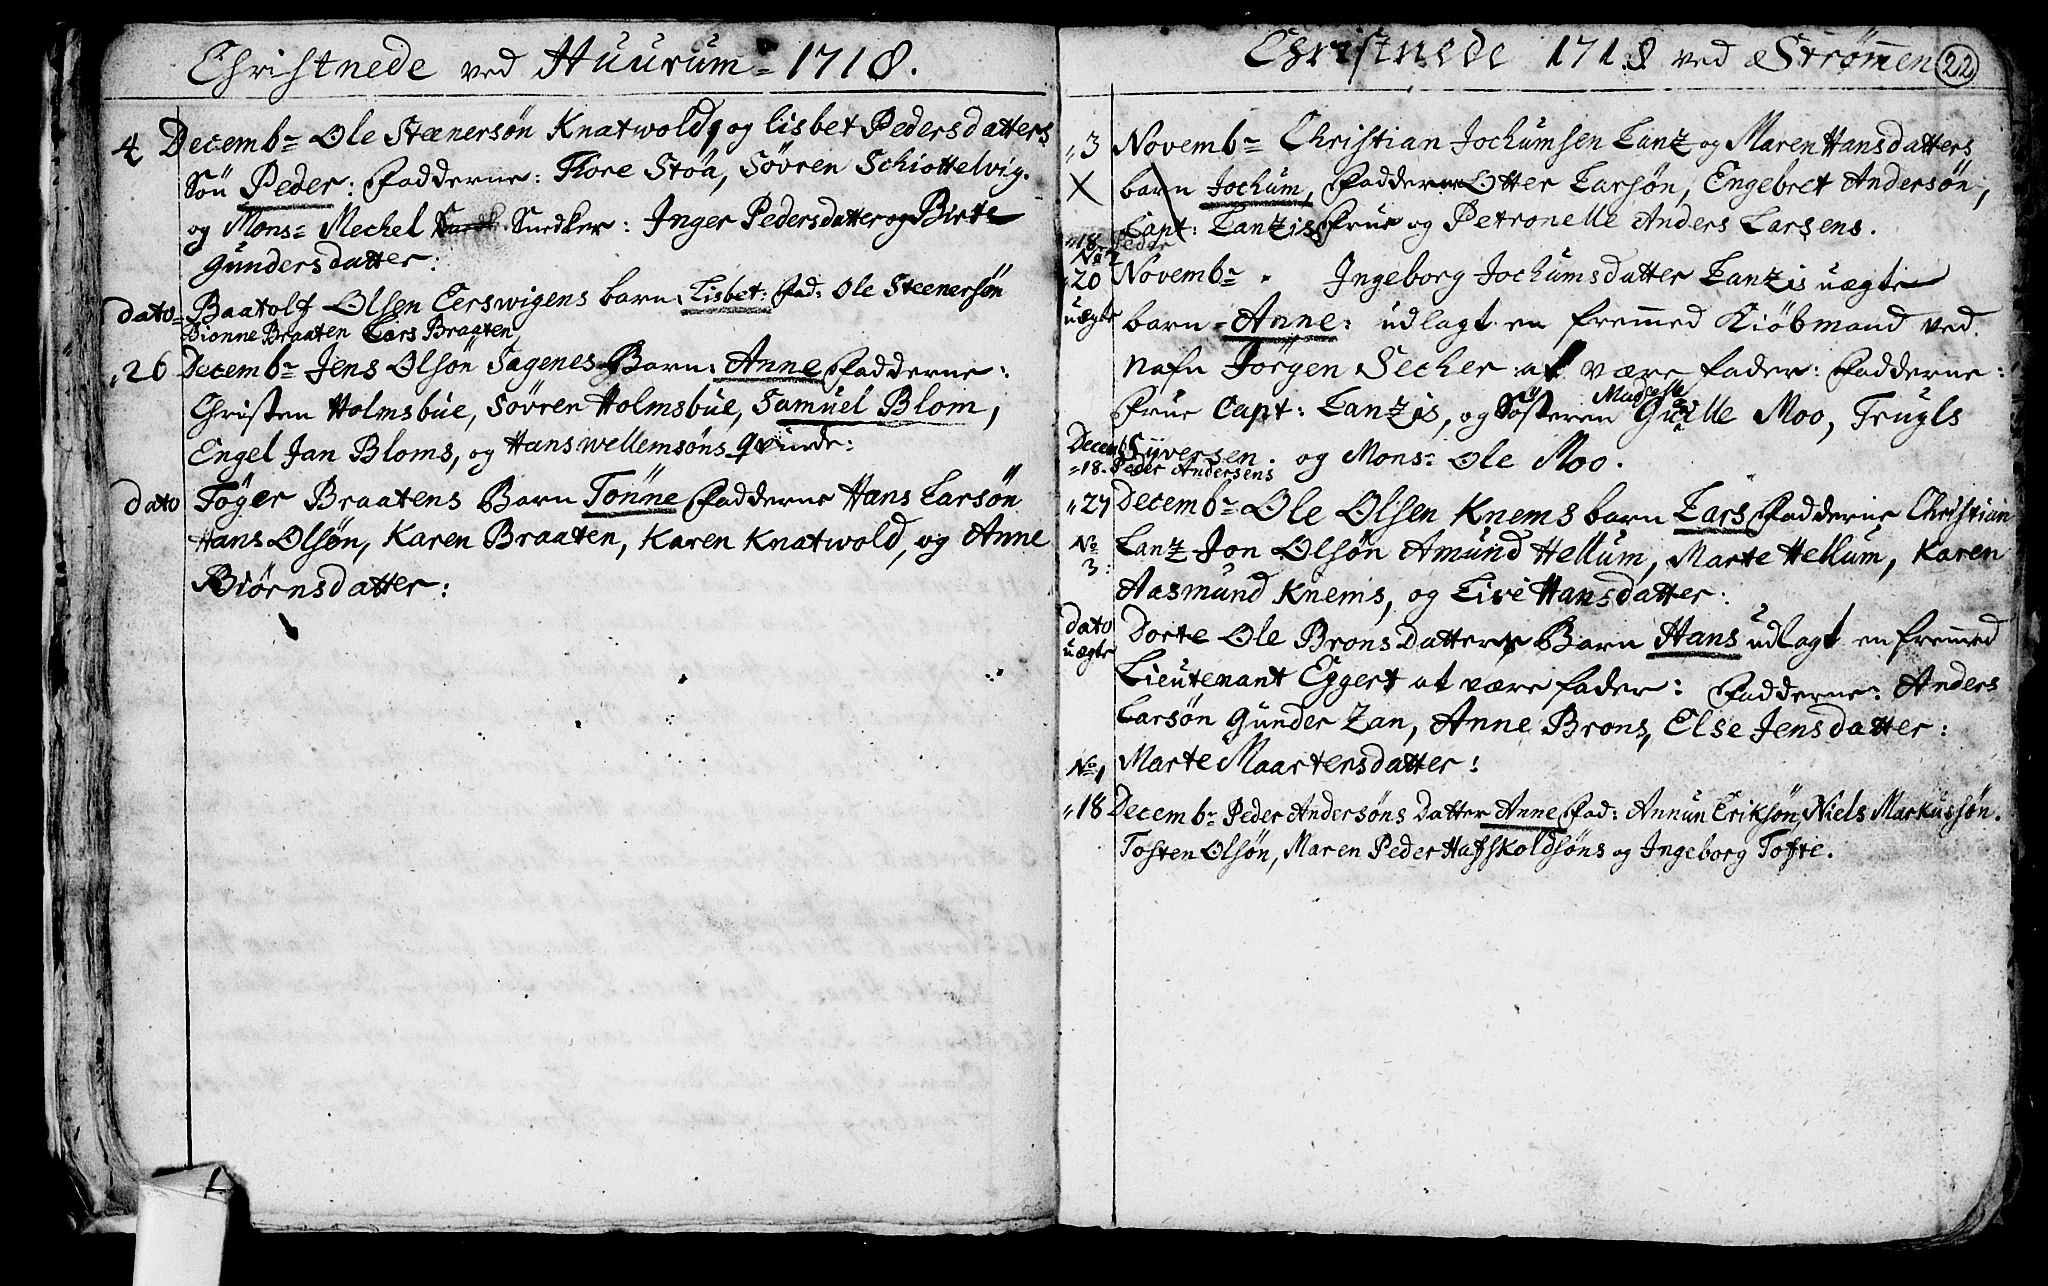 Christnede ved Huurum = 1718.
4 Decembr Ole Steenersön Knatwold, og Lisbet Pedersdatters
Sön Peder: Fadderne: Tore Stöa, Sövren Schiottelvig.
og Mons: Mechel Snedker: Inger Pedersdatter og Birte
Gundersdatter:
dato= Baatolf Olsen Eerswigens barn Lisbet: Fad: Ole Steenersön
Dionne Braaten Lars Braaten
"26 Decembr Jens Olsön Sagenes Barn: Anne Fadderne:
Christen Holmsbue, Sövren Holmsbue, Samuel Blom,
Engel Jan Bloms, og Hans wellemsöns qvinde:
dato Töger Braatens Barn Tönne Fadderne Hans Larsön
Hans Olsön, Karen Braaten, Karen Knatwold, og Anne
Biörnsdatter:
Christnede 1718 ved Strömen 22
"3 Novembr Christian Jochumsen Lanz og Maren Hansdatters
X barn Jochum, Fadderne Otter Larsön, Engebret Andersön,
Capt: Lanzis Frue og Petronelle Anders Larsens.
"18 Peder
No 2
20 Novembr Ingeborg Jochumsdatter Lanzis uægte
uægte barn Anne: udlagt en fremed Kiöbmand ved
Nafn Jörgen Secher at være fader: Fadderne:
Frue Capt: Lanzis, og Sösteren Gurille Moo, Trugls
Decemb Syversen. og Mons: Ole Moo.
"18. Peder Andersens
"27 Decembr Ole Olsen Knems barn Lars Fadderne Christian
No 3: Lanz Jon Olsön Amund Hellum, Marte Hellum, Karen
Aasmund Knems, og Live Hansdatter:
dato Dorte Ole Bronsdatters Barn Hans udlagt en fremed
uægte Lieutenant Eggert at være fader: Fadderne: Anders
Larsön Gunder Zan, Anne Brons, Else Jensdatter:
No 1 Marte Maartensdatter:
"18 Decembr Peder Andersöns Datter Anne Fad: Annun Eriksön, Niels Markussön.
Tosten Olsön, Maren Peder Hafskoldsöns og Ingeborg Tofte.